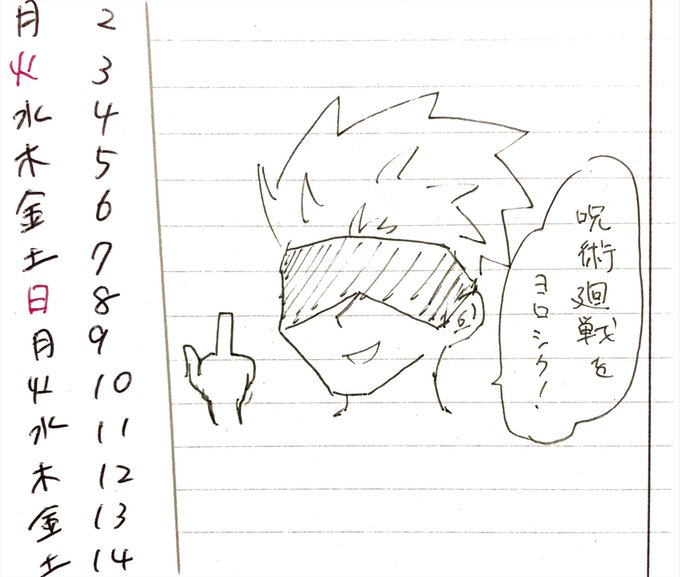 月 2
火 3
水 4
木 5
金 6
土 7
日 8
月 9
火 10
水 11
木 12
金 13
土 14
呪術廻戦を
ヨロシク!